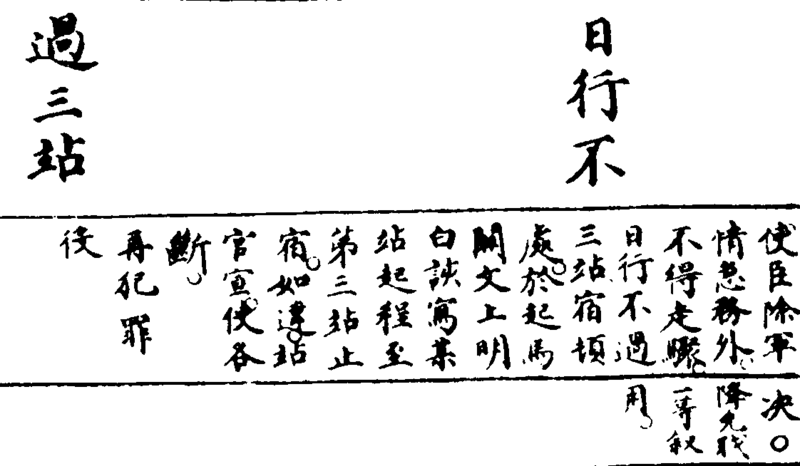 日行不
過三站
使臣除軍
情急務外
不得走驟
日行不過
三站宿頓
處於起馬
關文上明
白該寫某
站起程至
第三站止
宿如違站
官宣使各
斷
再犯罪
役
决〇
降先職
一等叙
用